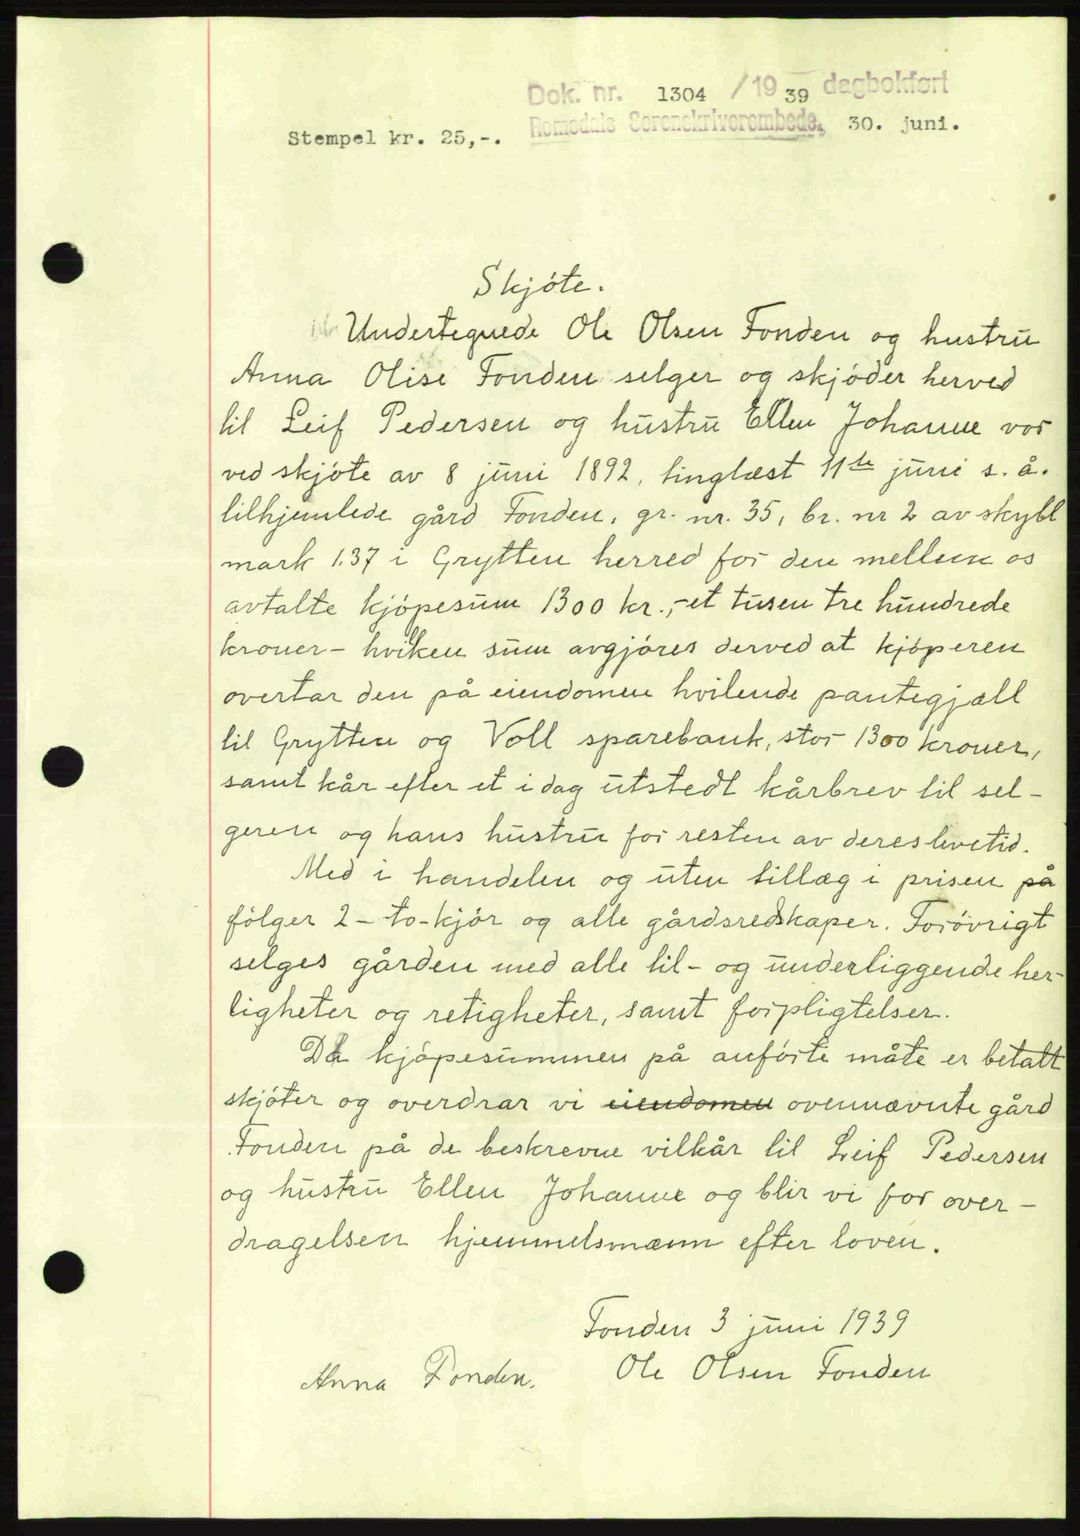 Dok. nr. 1304 /19 39 dagbokført
Romsdals Sorenskriverembede, 30. juni.
Stempel kr. 25,-.
Skjóte.
Undertegnede Ole Olsen Fonden og hustru
Anna Olise Fonden selger og skjóder herved
til Leif Pedersen og hustru Ellen Johanne vor
ved skjóte av 8 juni 1892, tinglæst 11te juni s. å.
tilhjemlede gård Fonden, gr. nr. 35, br. nr 2 av skyld
mark 1.37 i Grytten herred for den mellem os
avtalte kjópesum 1300 kr., - et tusen tre hundrede
kroner - hvilken sum avgjóres derved at kjóperen
overtar den på eiendomen hvilende pantegjæll
til Grytten og Voll sparebank, stor 1300 kroner,
samt kår efter et i dag utstedt kårbrev til sel-
geren og hans hustru for resten av deres levetid.
Med i handelen og uten tillæg i prisen på
fólger 2 - to - kjór og alle gårdsredskaper. Foróvrigt
selges gården med alle til- og underliggende her-
ligheter og retigheter, samt forpligtelser.
Da kjópesummen på anfórte måte er betalt
skjóter og overdrar vi eiendomen ovennævnte gård
Fonden på de beskrevne vilkår til Leif Pedersen
og hustru Ellen Johanne og blir vi for over-
dragelsen hjemmelsmænn efter loven.
Fonden 3 juni 1939
Anna Fonden. Ole Olsen Fonden